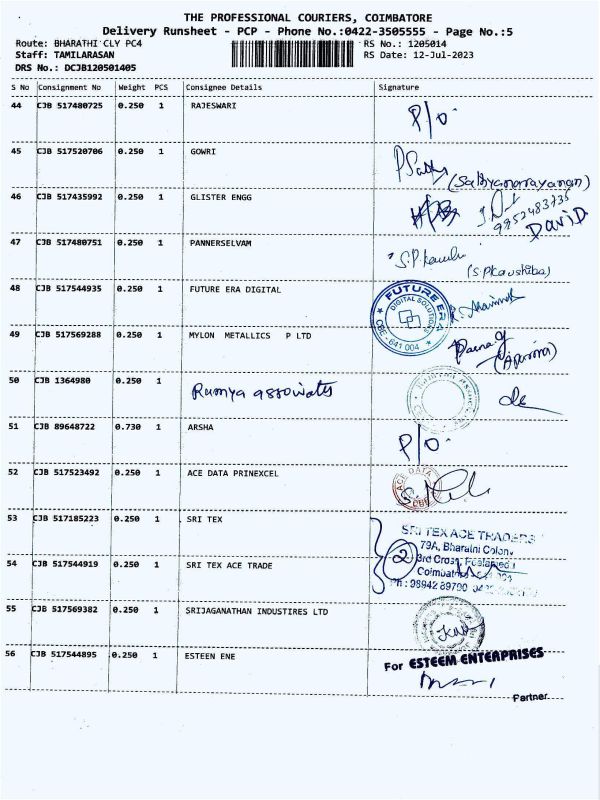 THE PROFESSIONAL COURIERS, COIMBATORE
Delivery Runsheet - PCP - Phone No.:0422-3505555 - Page No.:5
Route: BHARATHI CLY PC4 RS No.: 1205014
Staff: TAMILARASAN RS Date: 12-Jul-2023
DRS No.: DCJB120501405
S No Consignment No Weight PCS Consignee Details Signature
44 CJB 517480725 0.250 1 RAJESWARI P/o.
45 CJB 517520706 0.250 1 GOWRI
(Sathyanarayanan)
46 CJB 517435992 0.250 1 GLISTER ENGG
9952483735
DAVID
47 CJB 517480751 0.250 1 PANNERSELVAM
(S.P.Kaushiba)
48 CJB 517544935 0.250 1 FUTURE ERA DIGITAL
FUTURE ERA
DIGITAL SOLUTIONS
CBE - 641 004
49 CJB 517569288 0.250 1 MYLON METALLICS P LTD
50 CJB 1364980 0.250 1 Ramya associates
51 CJB 89648722 0.730 1 ARSHA P/o.
52 CJB 517523492 0.250 1 ACE DATA PRINEXCEL
ACE DATA
53 CJB 517185223 0.250 1 SRI TEX
SRI TEX ACE TRADERS
79A, Bharathi Colony
2 3rd Cross,
54 CJB 517544919 0.250 1 SRI TEX ACE TRADE
Coimbatore
Ph : 98942 89790
55 CJB 517569382 0.250 1 SRIJAGANATHAN INDUSTIRES LTD
56 CJB 517544895 0.250 1 ESTEEN ENE
For ESTEEM ENTERPRISES
Partner